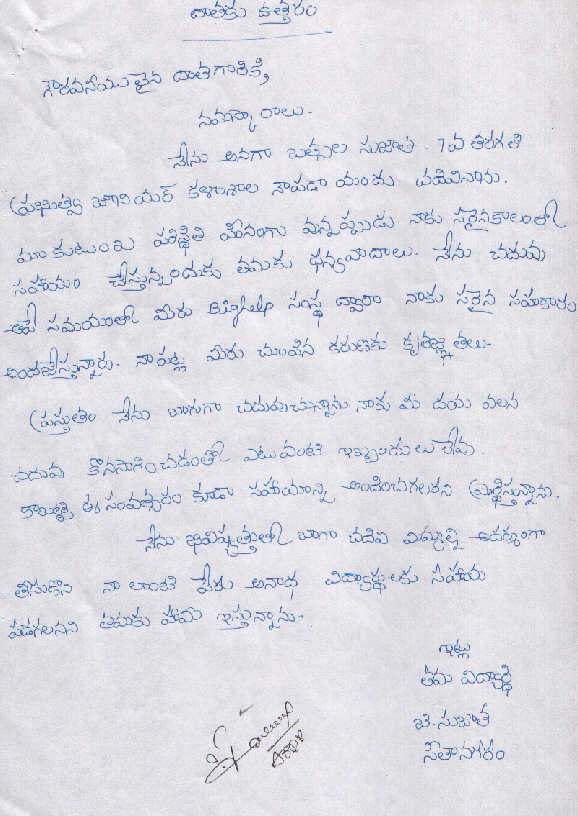 దాతకు ఉత్తరం
గౌరవనీయులైన దాతగారికి
నమస్కారాలు.
నేను అనగా బత్తుల సుజాత. 7వ తరగతి
ప్రభుత్వ జూనియర్ కళాశాల నందు చదివినాను.
మా కుటుంబ పరిస్థితి హీనంగా వున్నప్పుడు నాకు సరైనకాలంలో
సహాయం చేస్తున్నందుకు తమకు ధన్యవాదాలు. నేను చదువు
ఆపే సమయంలో మీరు Bighelp సంస్థ ద్వారా నాకు సరైన సహకారం
అందజేస్తున్నారు. నాపట్ల మీరు చూపిన కరుణకు కృతజ్ఞతలు.
ప్రస్తుతం నేను బాగుగా చదువుచున్నాను నాకు మీ దయ వలన
చదువు కొనసాగించడంలో ఎటువంటి ఇబ్బందులు లేవు.
కాబట్టి ఈ సంవత్సరం కూడా సహాయాన్ని అందించగలరని ప్రార్థిస్తున్నాను.
నేను భవిష్యత్తులో బాగా చదివి మిమ్మల్ని ఆదర్శంగా
తీసుకొని నా లాంటి పేద అనాధ విద్యార్థులకు సహాయ
పడగలనని తమకు హామీ ఇస్తున్నాను.
ఇట్లు
తమ విద్యార్థి
బి.సుజాత
సీతానగరం